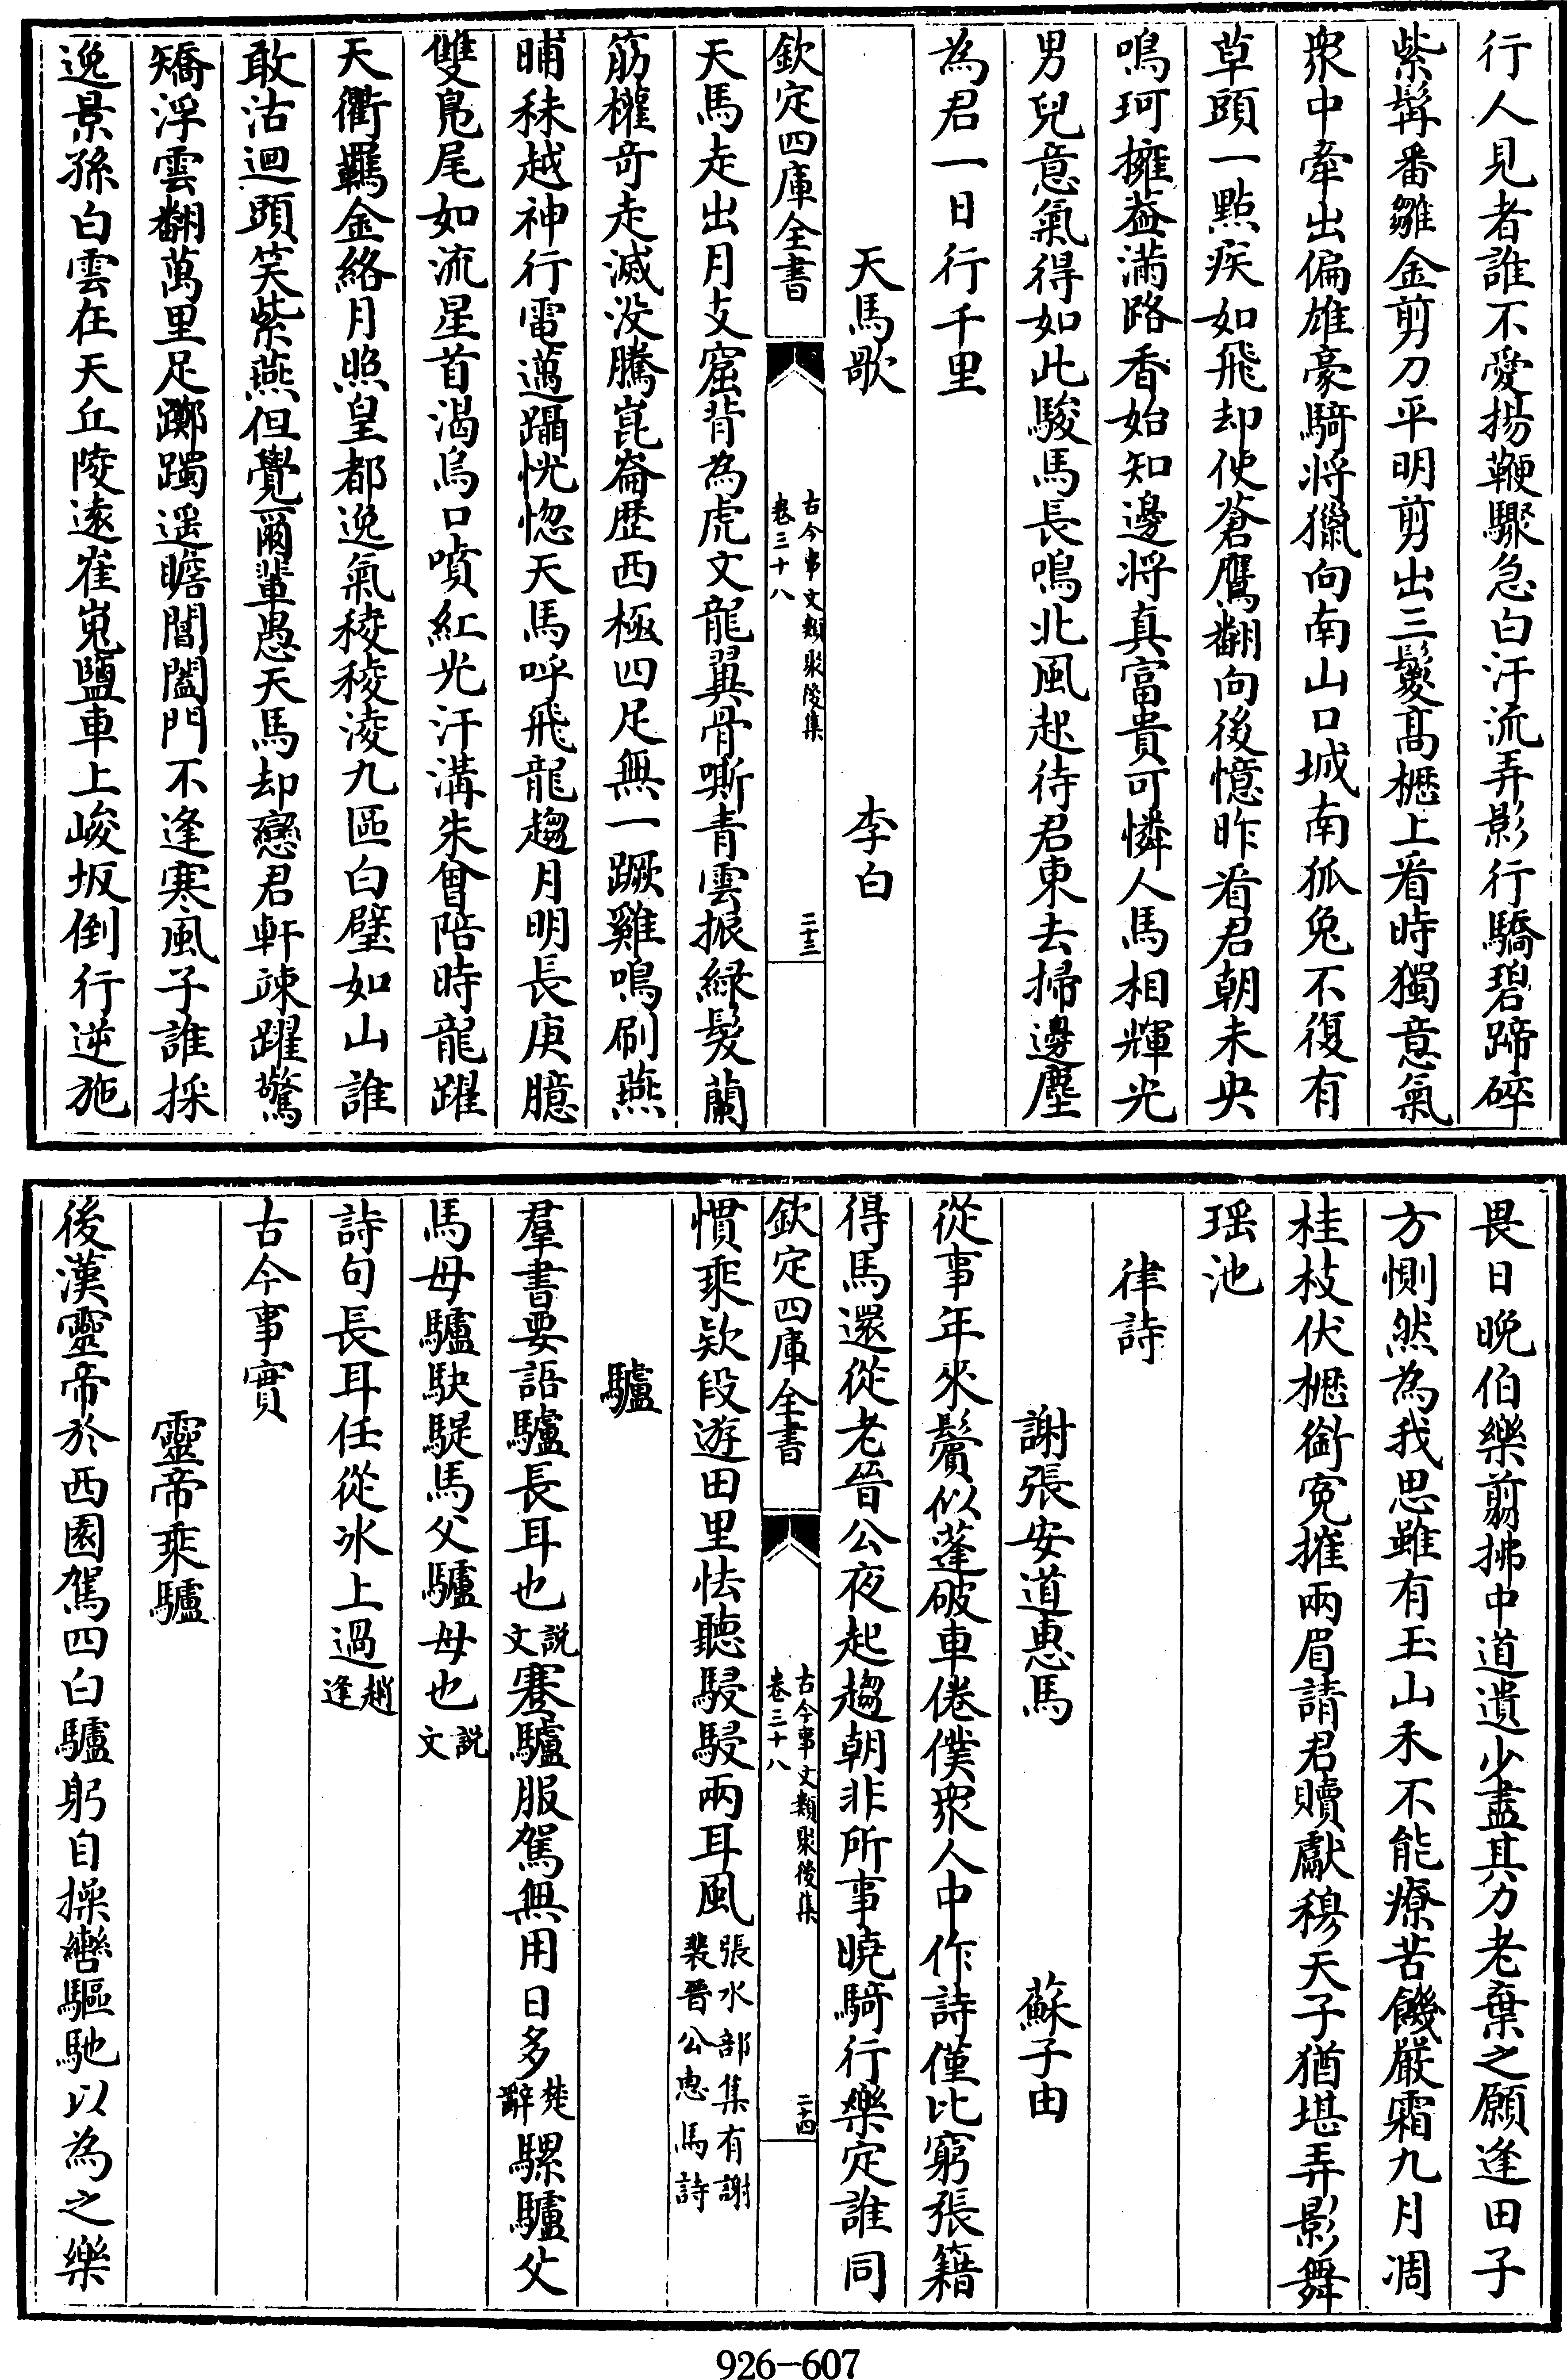 行人見者誰不愛揚鞭驟急白汗流弄影行驕碧蹄碎
紫髯番雛金剪刀平明剪出三鬉髙櫪上看時獨意氣
衆中牽出偏雄豪騎将獵向南山口城南狐兔不復有
草頭一點疾如飛却使蒼鷹翻向後憶昨看君朝未央
鳴珂擁葢滿路香始知邊将真富貴可憐人馬相輝光
男兒意氣得如此駿馬長鳴北風起待君東去掃邊塵
為君一日行千里
天馬歌 李白
欽定四庫全書
古今事文類聚後集
卷三十八
二十三
天馬走出月支窟背為虎文龍翼骨嘶青雲振緑髮蘭
筋權竒走滅没騰崑崙歴西極四足無一蹶雞鳴刷燕
晡秣越神行電邁躡恍惚天馬呼飛龍趨月明長庚臆
雙鳬尾如流星首渴烏口噴紅光汗溝朱曾陪時龍躍
天衢羈金絡月照皇都逸氣稜稜淩九區白璧如山誰
敢沽迴頭笑紫燕但覺爾輩愚天馬却戀君軒竦躍驚
矯浮雲翻萬里足躑躅遥瞻閶闔門不逢寒風子誰採
逸景孫白雲在天丘陵逺崔嵬鹽車上峻坂倒行逆施
畏日晩伯樂翦拂中道遺少盡其力老棄之願逢田子
方惻然為我思雖有玉山禾不能療苦饑嚴霜九月凋
桂枝伏櫪銜寃摧兩眉請君贖獻穆天子猶堪弄影舞
瑶池
律詩
謝張安道惠馬 蘇子由
從事年來鬢似蓬破車倦僕衆人中作詩僅比窮張籍
得馬還從老晉公夜起趨朝非所事曉騎行樂定誰同
欽定四庫全書
古今事文類聚後集
卷三十八
二十四
慣乘欵段遊田里怯聽駸駸兩耳風張水部集有謝裴晉公惠馬詩
驢
羣書要語驢長耳也説文蹇驢服駕無用日多楚辭騾驢父
馬母驢駃騠馬父驢母也説文
詩句長耳任從氷上過趙逢
古今事實
靈帝乘驢
後漢靈帝於西園駕四白驢躬自操轡驅馳以為之樂
926—607